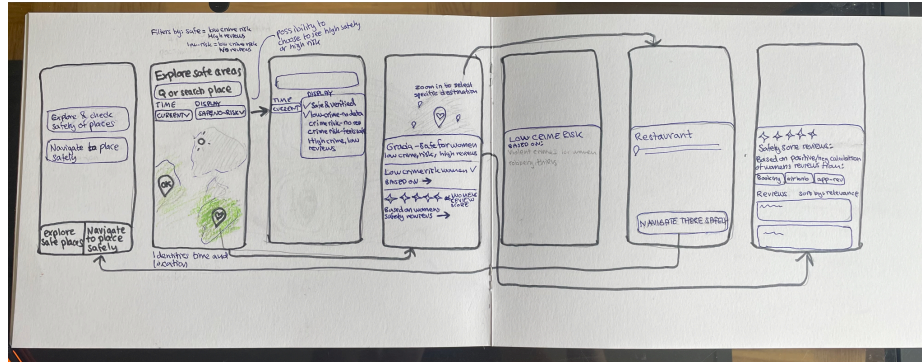 Filters by: safe = low crime risk
High reviews
low-risk = low crime risk
No reviews
possibility to
choose to see high safely
or high risk
Explore & check
safety of places
Navigate to place
safely
explore
safe places
Navigate
to place
safely
Explore safe areas
Q or search place
TIME
DISPLAY
CURRENT V
SAFE/NO-RISK V
OK
Identifies time and
location
DISPLAY
TIME
CURRENT
✓ Safe & verified
✓ low-crime-no data
crime risk-no
crime risk-feels safe
High crime, low
reviews
zoom in to select
specific destination
Gracia - Safe for women
low crime risk, high reviews
Low crime risk women ✓
BASED ON →
WOMEN
REVIEW
SCORE
Based on womens
safety reviews →
LOW CRIME RISK
BASED ON:
violent crimes to women
robbery, thefts
Restaurant
NAVIGATE THERE SAFELY
Safety score reviews:
Based on positive/neg calculation
of womens reviews from:
Booking
airbnb
app-rev
Reviews
sort by: relevance